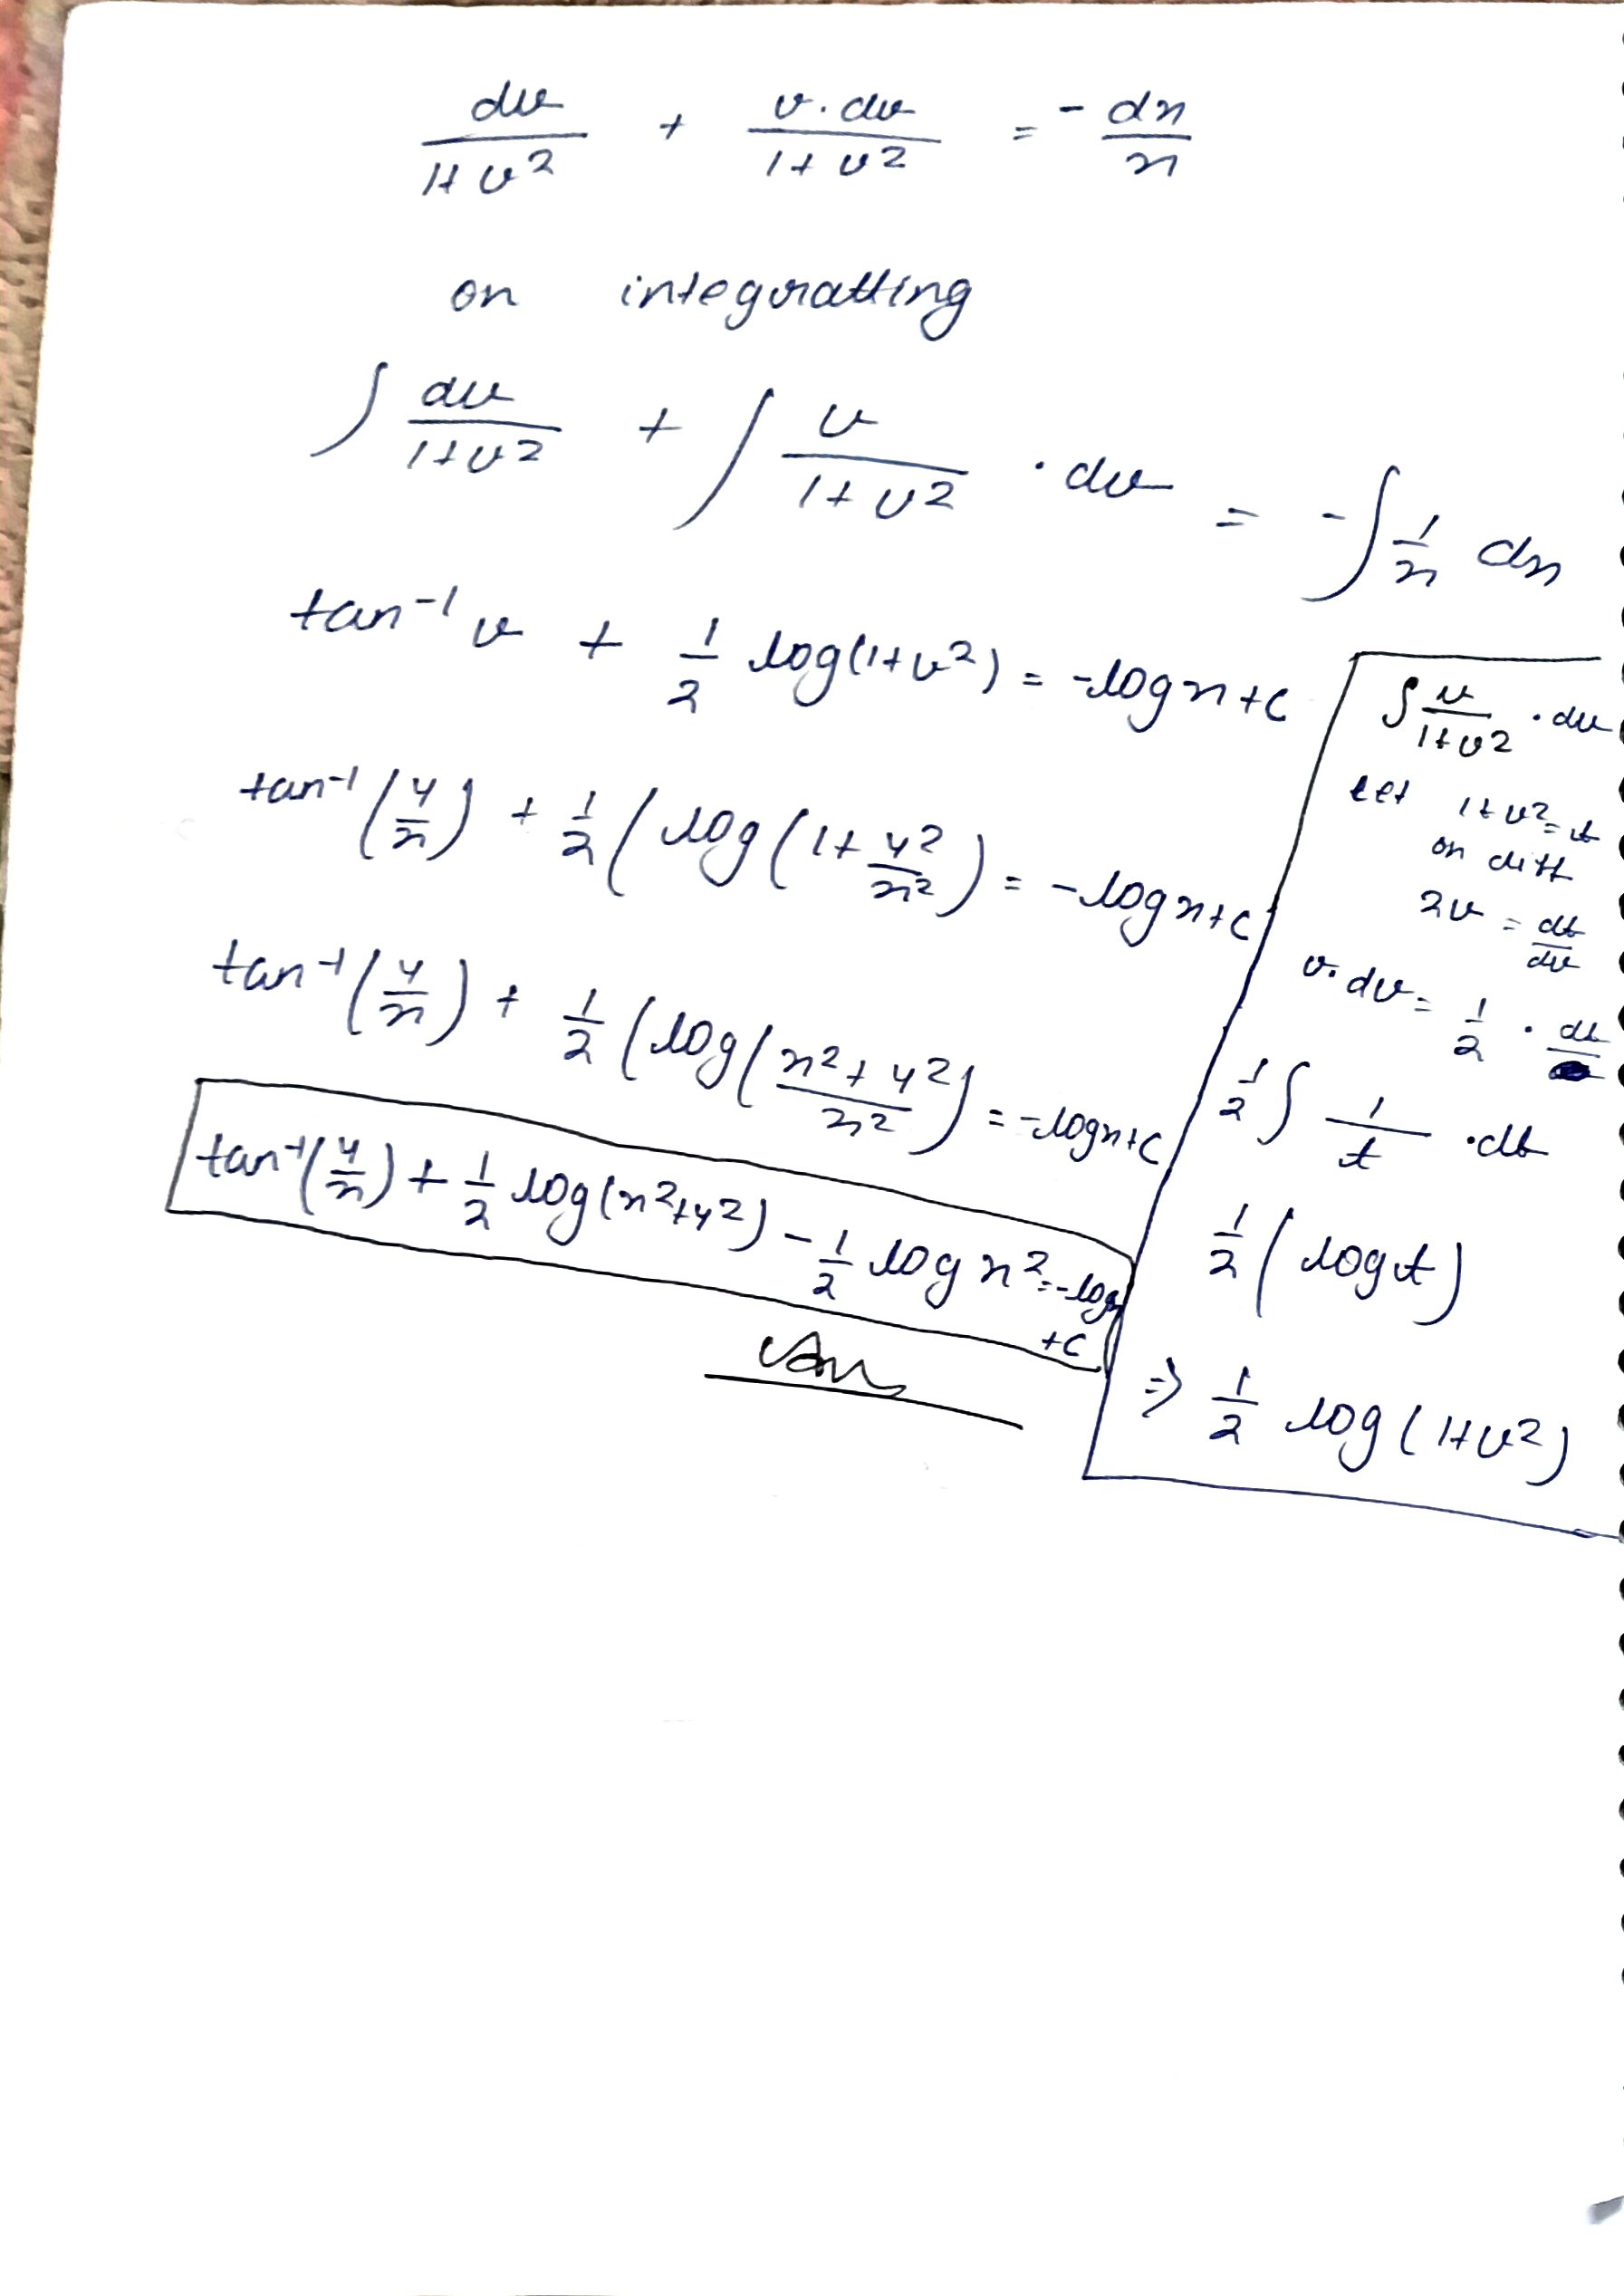 dv/(1+v²) + v.dv/(1+v²) = - dx/x
on integratting
∫ dv/(1+v²) + ∫ v/(1+v²) · dv = - ∫ 1/x dx
tan⁻¹ v + 1/2 log(1+v²) = -log x + c
tan⁻¹(y/x) + 1/2 (log(1+ y²/x²) = -log x + c
tan⁻¹(y/x) + 1/2 (log(x²+y²/x²) = -log x + c
tan⁻¹(y/x) + 1/2 log(x²+y²) - 1/2 log x² = -log x
+c
Ans
∫ v/(1+v²) · dv
let 1+v² = t
on diff
2v = dt/dv
v.dv = 1/2 · dt
1/2 ∫ 1/t · dt
1/2 (log t)
⇒ 1/2 log(1+v²)